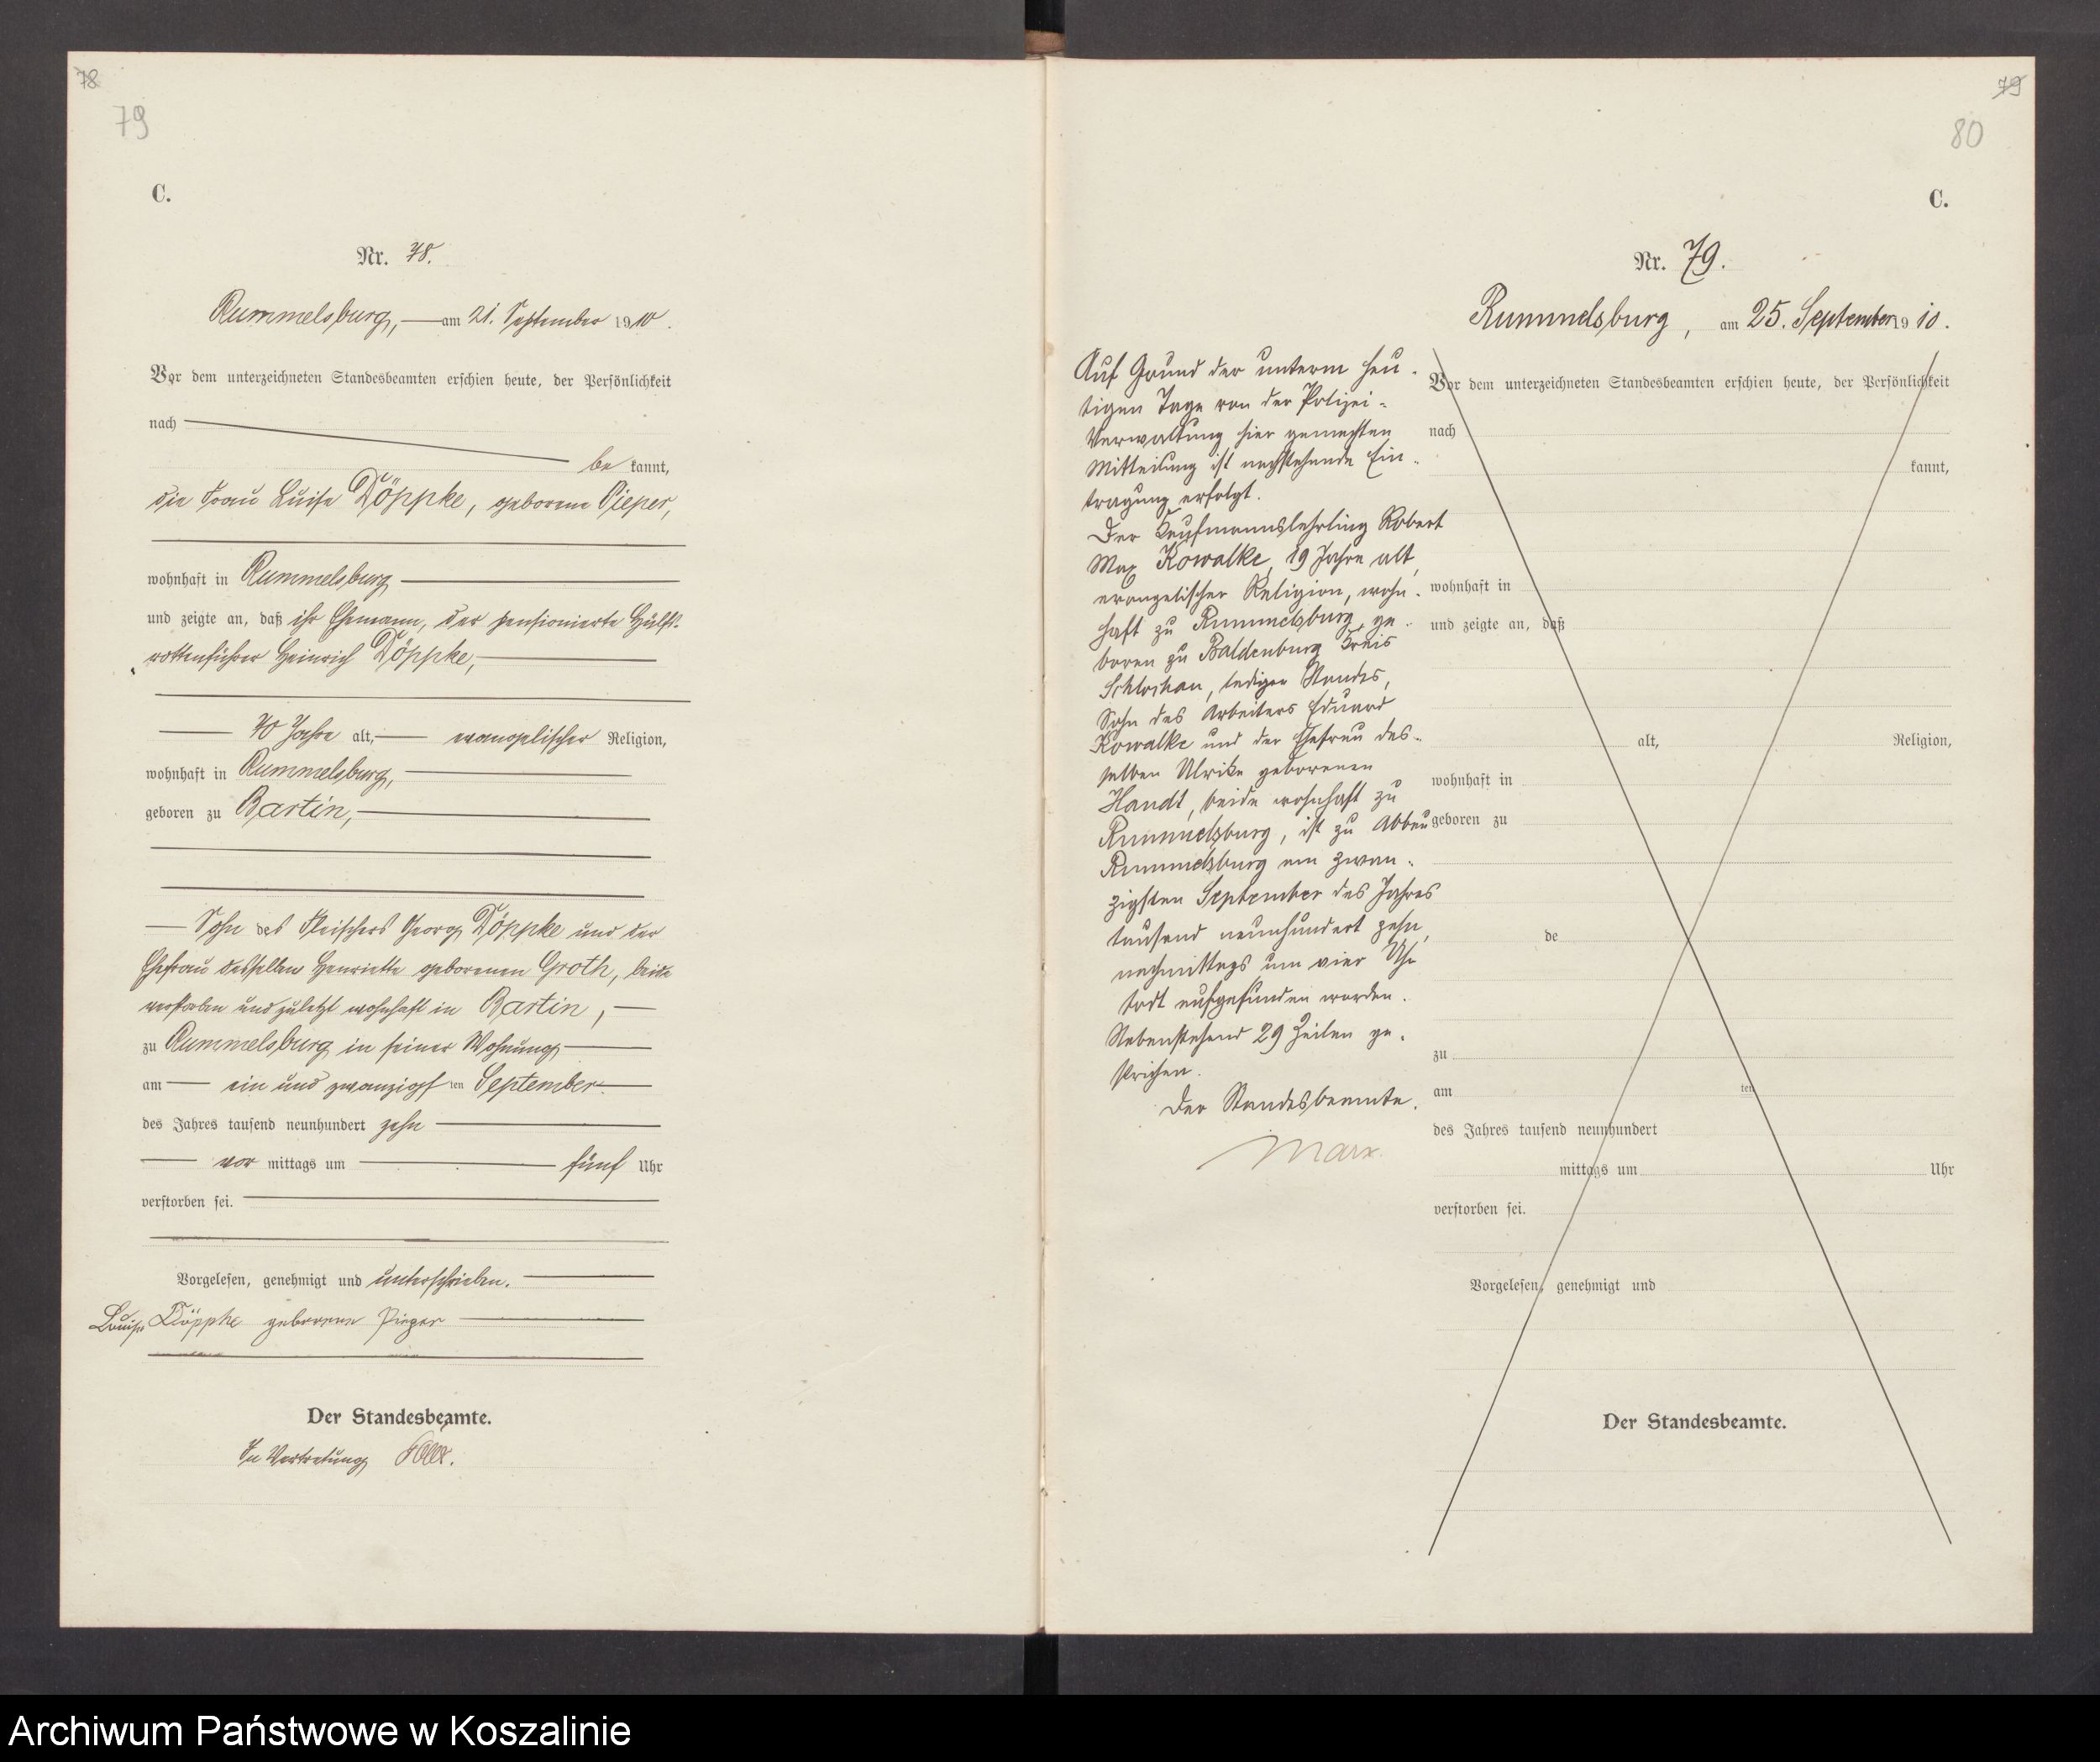 78
79
C.
Nr. 78.
Rummelsburg, am 21. September 1910.
Vor dem unterzeichneten Standesbeamten erschien heute, der Persönlichkeit
nach
bekannt,
die Frau Luise Döppke, geborene Pieper,
wohnhaft in Rummelsburg
und zeigte an, daß ihr Ehemann, der pensionierte Hülfs-
rottenführer Heinrich Döppke,
70 Jahre alt, evangelischer Religion,
wohnhaft in Rummelsburg,
geboren zu Bartin,
Sohn des Fleischers Georg Döppke und der
Ehefrau desselben Henriette geborenen Groth, beide
verstorben und zuletzt wohnhaft in Bartin,
zu Rummelsburg in seiner Wohnung
am ein und zwanzigsten September
des Jahres tausend neunhundert zehn
vormittags um fünf Uhr
verstorben sei.
Vorgelesen, genehmigt und unterschrieben.
Louise Döppke geborene Pieper
Der Standesbeamte.
In Vertretung
79
80
C.
Nr. 79.
Rummelsburg, am 25. September 1910.
Auf Grund der unterm heu-
tigen Tage von der Polizei-
Verwaltung hier gemachten
Mitteilung ist nachstehende Ein-
tragung erfolgt.
Der Kaufmannslehrling Robert
Max Kowalke, 19 Jahre alt,
evangelischer Religion, wohn-
haft zu Rummelsburg, ge-
boren zu Baldenburg Kreis
Schlochau, ledigen Standes,
Sohn des Arbeiters Eduard
Kowalke und der Ehefrau des-
selben Ulrike geborenen
Handt, beide wohnhaft zu
Rummelsburg, ist zu Abbau
Rummelsburg am zwan-
zigsten September des Jahres
tausend neunhundert zehn,
nachmittags um vier Uhr
todt aufgefunden worden.
Nebenstehend 29 Zeilen ge-
strichen.
Der Standesbeamte.
Marx
Vor dem unterzeichneten Standesbeamten erschien heute, der Persönlichkeit
nach
kannt,
wohnhaft in
und zeigte an, daß
alt, Religion,
wohnhaft in
geboren zu
de
zu
am ten
des Jahres tausend neunhundert
mittags um Uhr
verstorben sei.
Vorgelesen, genehmigt und
Der Standesbeamte.
Archiwum Państwowe w Koszalinie